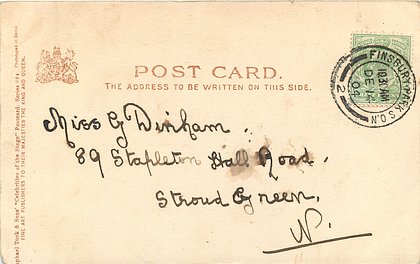 POST CARD.
THE ADDRESS TO BE WRITTEN ON THIS SIDE.
FINSBURY PARK S.O.N.
10.30 AM
DE
04
2
Miss G Dinham.
89 Stapleton Hall Road.
Stroud Green.
N.
Raphael Tuck & Sons' "Celebrities of the Stage" Postcard, Series
FINE ART PUBLISHERS TO THEIR MAJESTIES THE KING AND QUEEN.